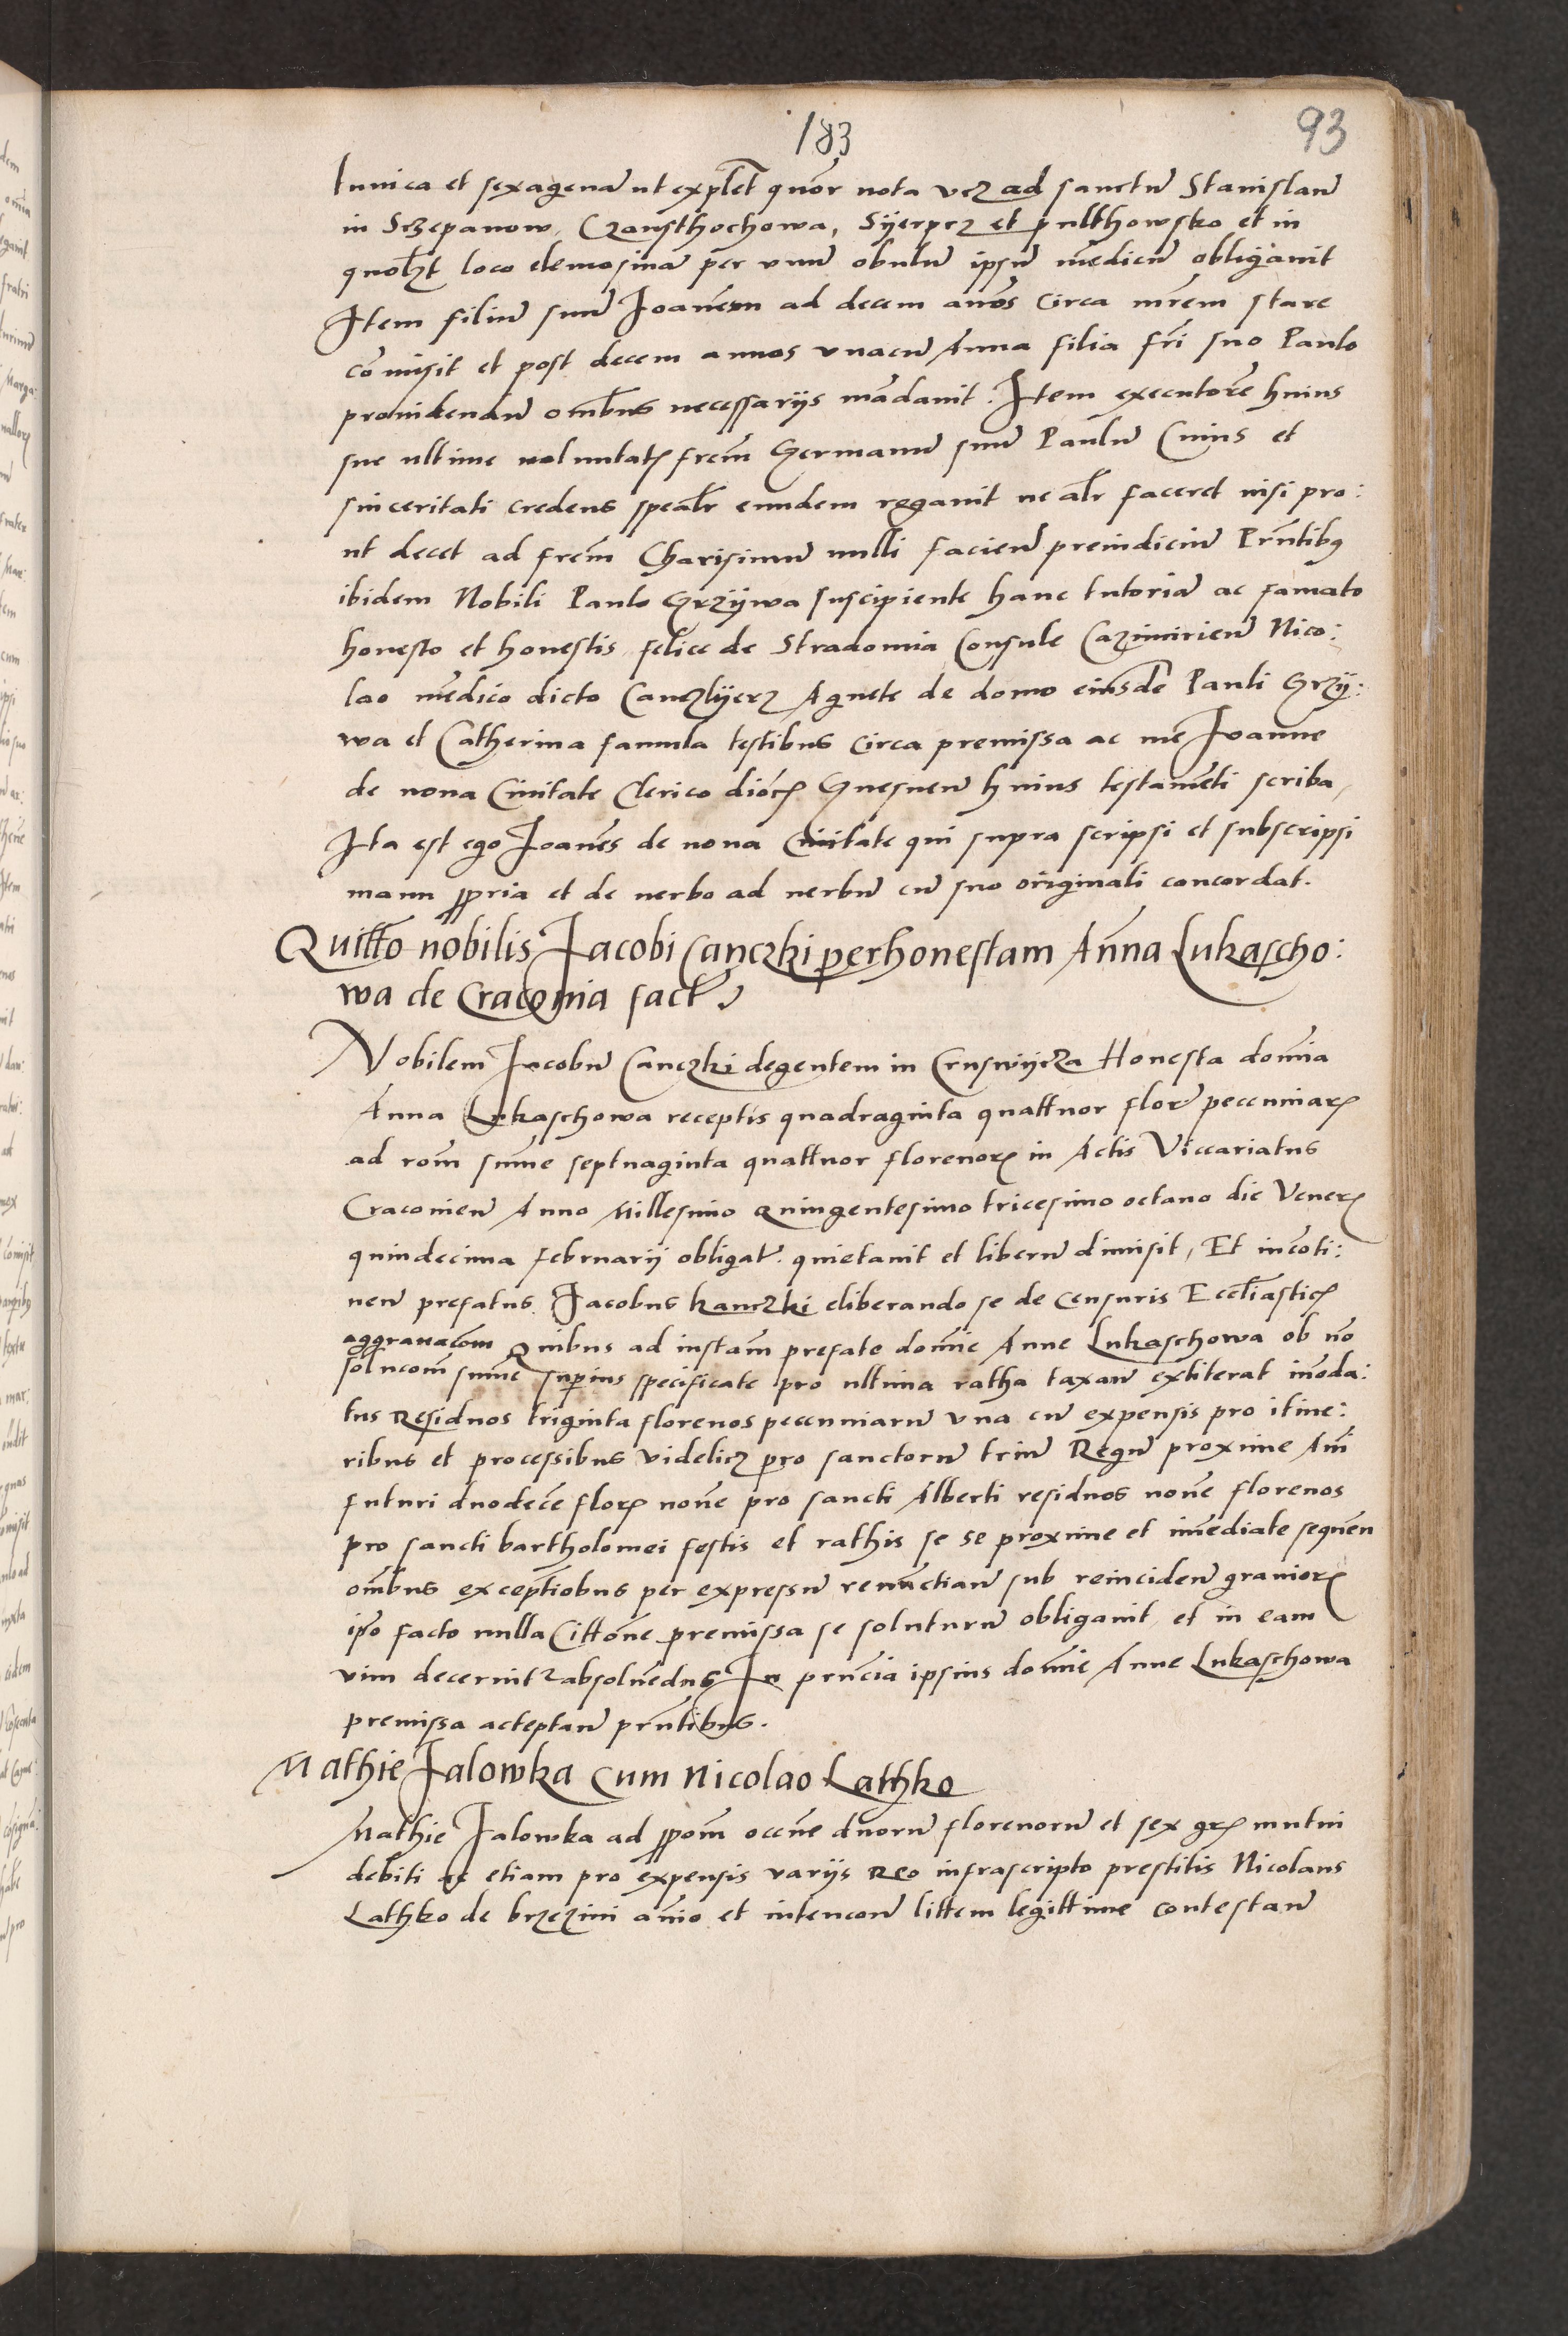 183
93
tunica et sexagena ut explet quor nota vcz ad sanctu Stanislau
in Sczepanow, Czansthochowa, Syerpcz et pulthowsko et in
quolzt loco elemosina per vnu obulu ipsu medicu obligauit
Item filiu suu Joanem ad decem anos circa mrem stare
comisit et post decem annos vnacu Anna filia fri suo Paulo
prouidendu ombus necessarijs madauit. Item executore huius
sue ultime voluntatis frem Germanu suu Paulu Cuius et
sinceritati credens spealr eundem rogauit ne alr faceret nisi pro:
ut decet ad frem Charisimu nulli facien preiudiciu Prntibus
ibidem Nobili Paulo Grzywa suscipiente hanc tutoria ac famato
honesto et honestis felice de Stradomia Consule Cazimirien Nico:
lao medico dicto Canczlyerz Agnete de domo eiusde Pauli Grzy:
wa et Catherina famula testibus circa premissa ac me Joanne
de noua Ciuitate Clerico dioc Gnesnen huius testameti scriba,
Ita est ego Joanes de noua Ciuitate qui supra scripsi et subscripsi
manu ppria et de uerbo ad uerbu cu suo originali concordat.
Quitto nobilis Jacobi Canczki per honestam Anna Lukascho:
wa de Cracouia fact
Nobilem Jacobu Canczki degentem in Cruswycza Honesta domia
Anna Lukaschowa receptis quadraginta quattuor flor pecuniar
ad rom sume septuaginta quattuor florenor in Actis Viccariatus
Cracouien Anno Millesimo Quingentesimo tricesimo octauo die Vener
quindecima februarij obligat. quietauit et liberu dimisit, Et incoti:
nen prefatus Jacobus kanczki eliberando se de Censuris Eccliastic
aggrauacom Quibus ad instam prefate domie Anne Lukaschowa ob no
solucom sume superius specificate pro ultima ratha taxan extiterat inoda:
tus Residuos triginta florenos peccuniaru vna cu expensis pro itine:
ribus et processibus videlicz pro sanctoru triu Regu proxime Ani
futuri duodece flor noue pro sancti Alberti residuos noue florenos
pro sancti bartholomei festis et rathis se se proxime et imediate sequen
ombus exceptiobus per expressu renunctian sub reinciden grauior
ipso facto nulla Cittone premissa se soluturu obligauit et in eam
vim decernit absoluedus In prncia ipsius domie Anne Lukaschowa
premissa acteptan prntibus.
Mathie Jalowka cum Nicolao Lathko
Mathie Jalowka ad ppom occne duoru florenoru et sex gr mutui
debiti ac etiam pro expensis varijs Reo infrascripto prestitis Nicolaus
Lathko de brzezini anio et intencon littem legittime contestan